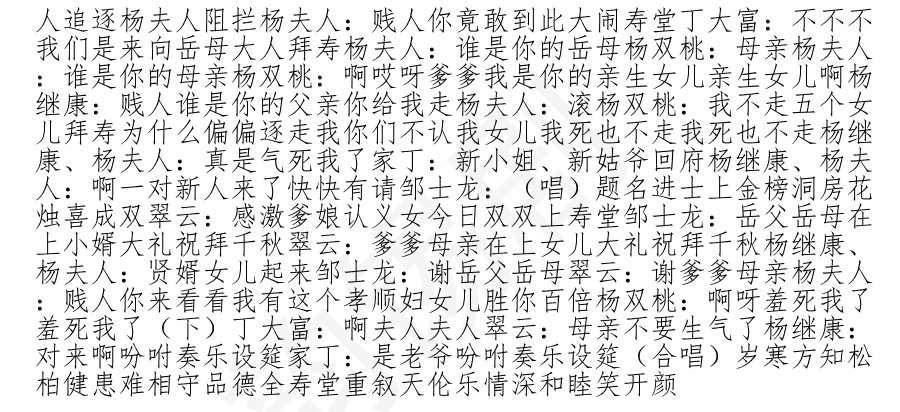 人追逐杨夫人阻拦杨夫人：贱人你竟敢到此大闹寿堂丁大富：不不不
我们是来向岳母大人拜寿杨夫人：谁是你的岳母杨双桃：母亲杨夫人
：谁是你的母亲杨双桃：啊哎呀爹爹我是你的亲生女儿亲生女儿啊杨
继康：贱人谁是你的父亲你给我走杨夫人：滚杨双桃：我不走五个女
儿拜寿为什么偏偏逐走我你们不认我女儿我死也不走我死也不走杨继
康、杨夫人：真是气死我了家丁：新小姐、新姑爷回府杨继康、杨夫
人：啊一对新人来了快快有请邹士龙：（唱）题名进士上金榜洞房花
烛喜成双翠云：感激爹娘认义女今日双双上寿堂邹士龙：岳父岳母在
上小婿大礼祝拜千秋翠云：爹爹母亲在上女儿大礼祝拜千秋杨继康、
杨夫人：贤婿女儿起来邹士龙：谢岳父岳母翠云：谢爹爹母亲杨夫人
：贱人你来看看我有这个孝顺妇女儿胜你百倍杨双桃：啊呀羞死我了
羞死我了（下）丁大富：啊夫人夫人翠云：母亲不要生气了杨继康：
对来啊吩咐奏乐设筵家丁：是老爷吩咐奏乐设筵（合唱）岁寒方知松
柏健患难相守品德全寿堂重叙天伦乐情深和睦笑开颜